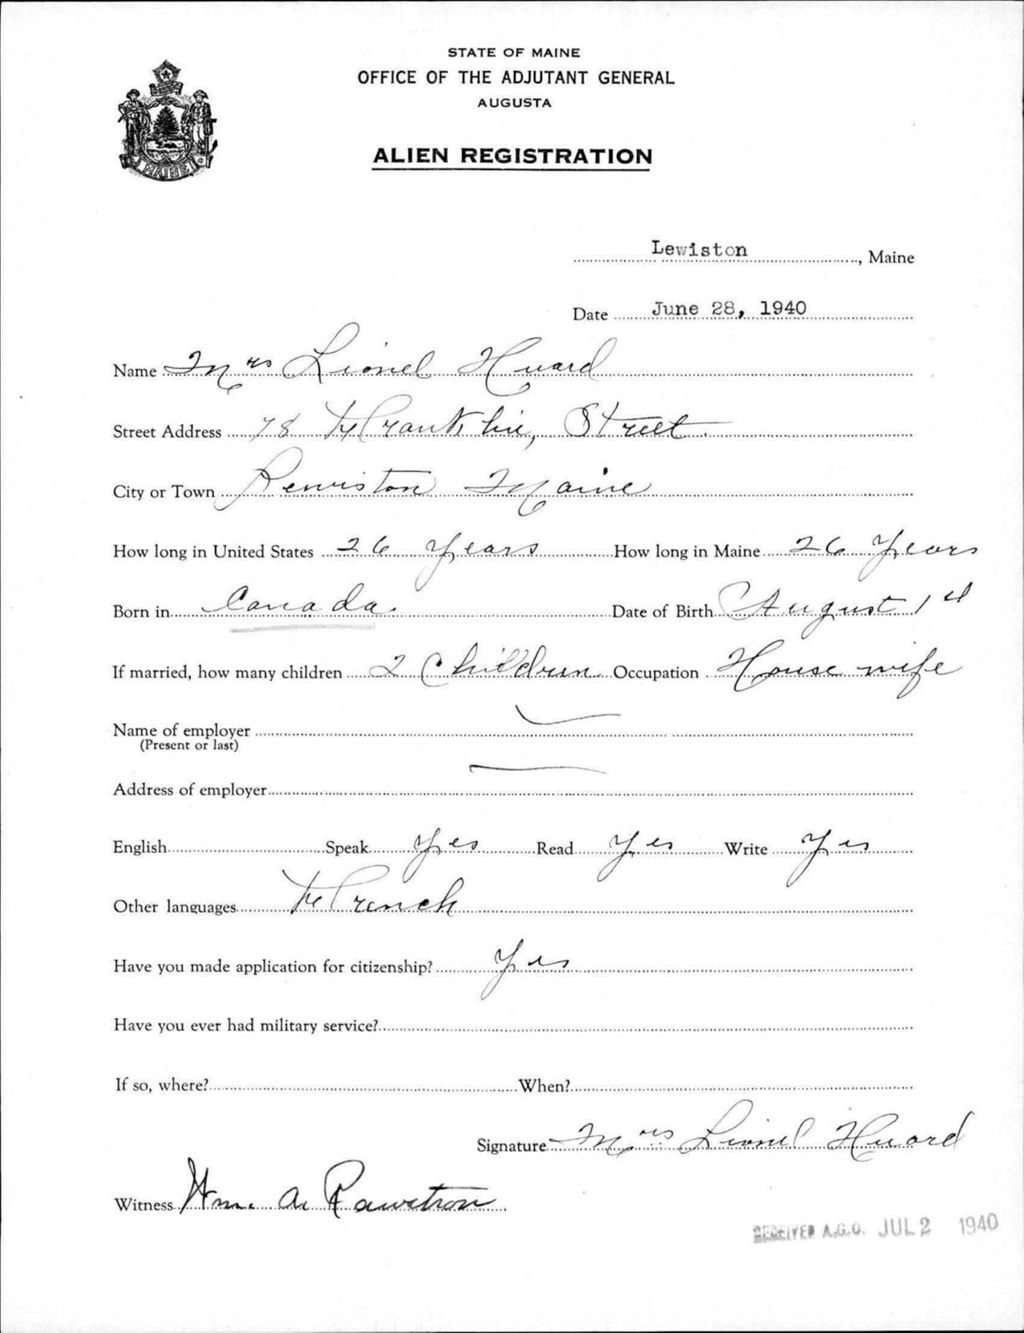 STATE OF MAINE
OFFICE OF THE ADJUTANT GENERAL
AUGUSTA
ALIEN REGISTRATION
MAINE
Lewiston, Maine
Date June 28, 1940
Name Mrs Lionel Huard
Street Address 78 Franklin, Street.
City or Town Lewiston Maine
How long in United States 26 Years How long in Maine 26 Years
Born in Canada. Date of Birth August 1st
If married, how many children 2 Children Occupation House wife
Name of employer
(Present or last)
Address of employer
English Speak Yes Read Yes Write Yes
Other languages French
Have you made application for citizenship? Yes
Have you ever had military service?
If so, where? When?
Signature Mrs Lionel Huard
Witness Wm. A. Rawstron
RECEIVED A.G.O. JUL 2 1940